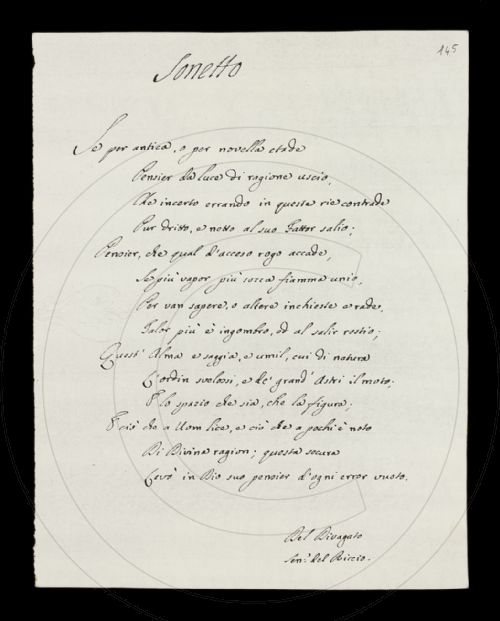 145
Sonetto
Se per antica, o per novella etade
Pensier da luce di ragione uscio,
Ne incerto errando in queste rie contrade
Pur dritto, e netto al suo Fattor salio;
Pensier, che qual d'acceso rogo accade,
Se più vapor più sozza fiamma unio,
Per van sapere, o altere inchieste e rade,
Talor più è ingombro, ed al salir restio;
Quest' Alma e saggia, e umil, cui di natura
L'ordin svelossi, e de' grand' Astri il moto;
E lo spazio che sia, che la figura;
E ciò che a Uom lice, e ciò che a pochi è noto
Di Divina ragion; questa secura
Levò in Dio suo pensier d'ogni error vuoto.
Del Divagato
Sen.r del Riccio.